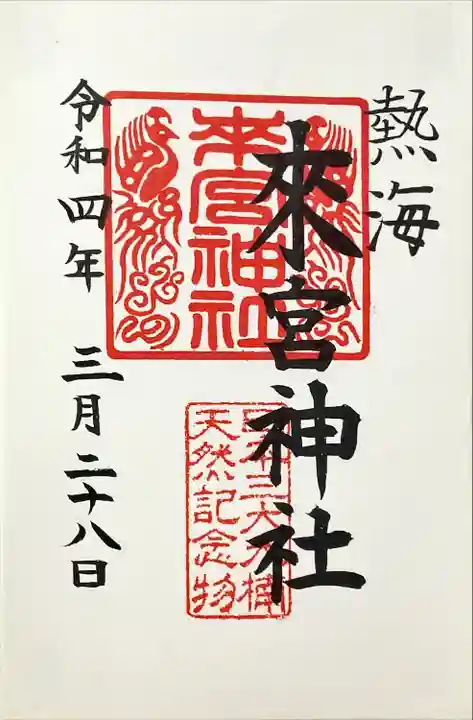 熱海
來宮神社
來宮神社
日本三大大楠
天然記念物
令和四年 三月二十八日